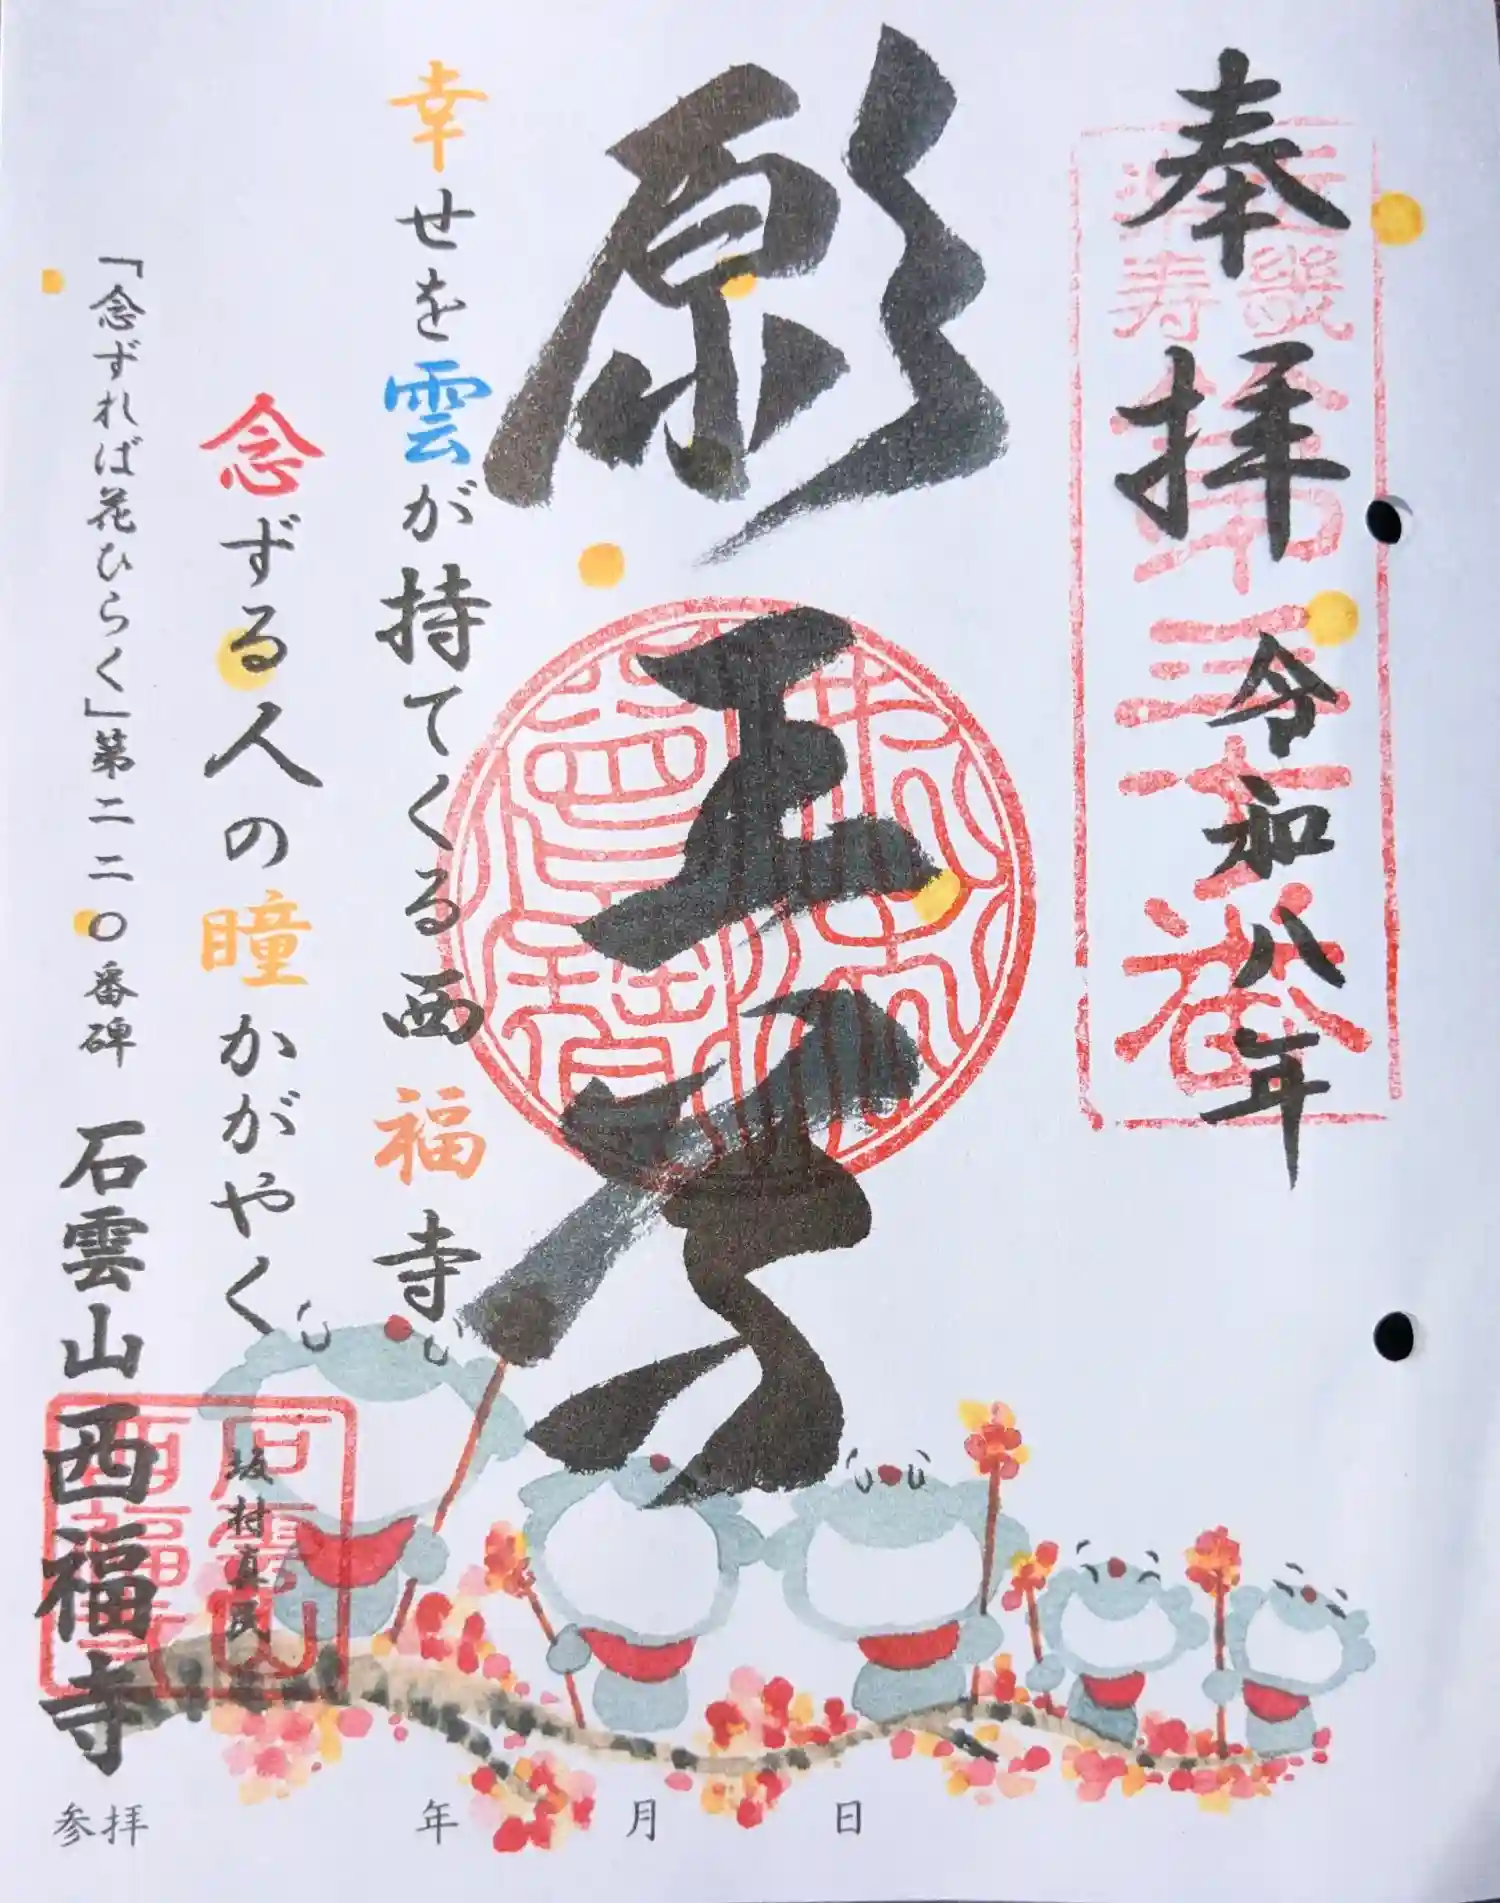 奉拝 令和八年
願王
幸せを雲が持てくる西福寺
念ずる人の瞳かがやく
坂村真民
「念ずれば花ひらく」第二二〇番碑 石雲山西福寺
石雲山
西福寺
参拝 年 月 日